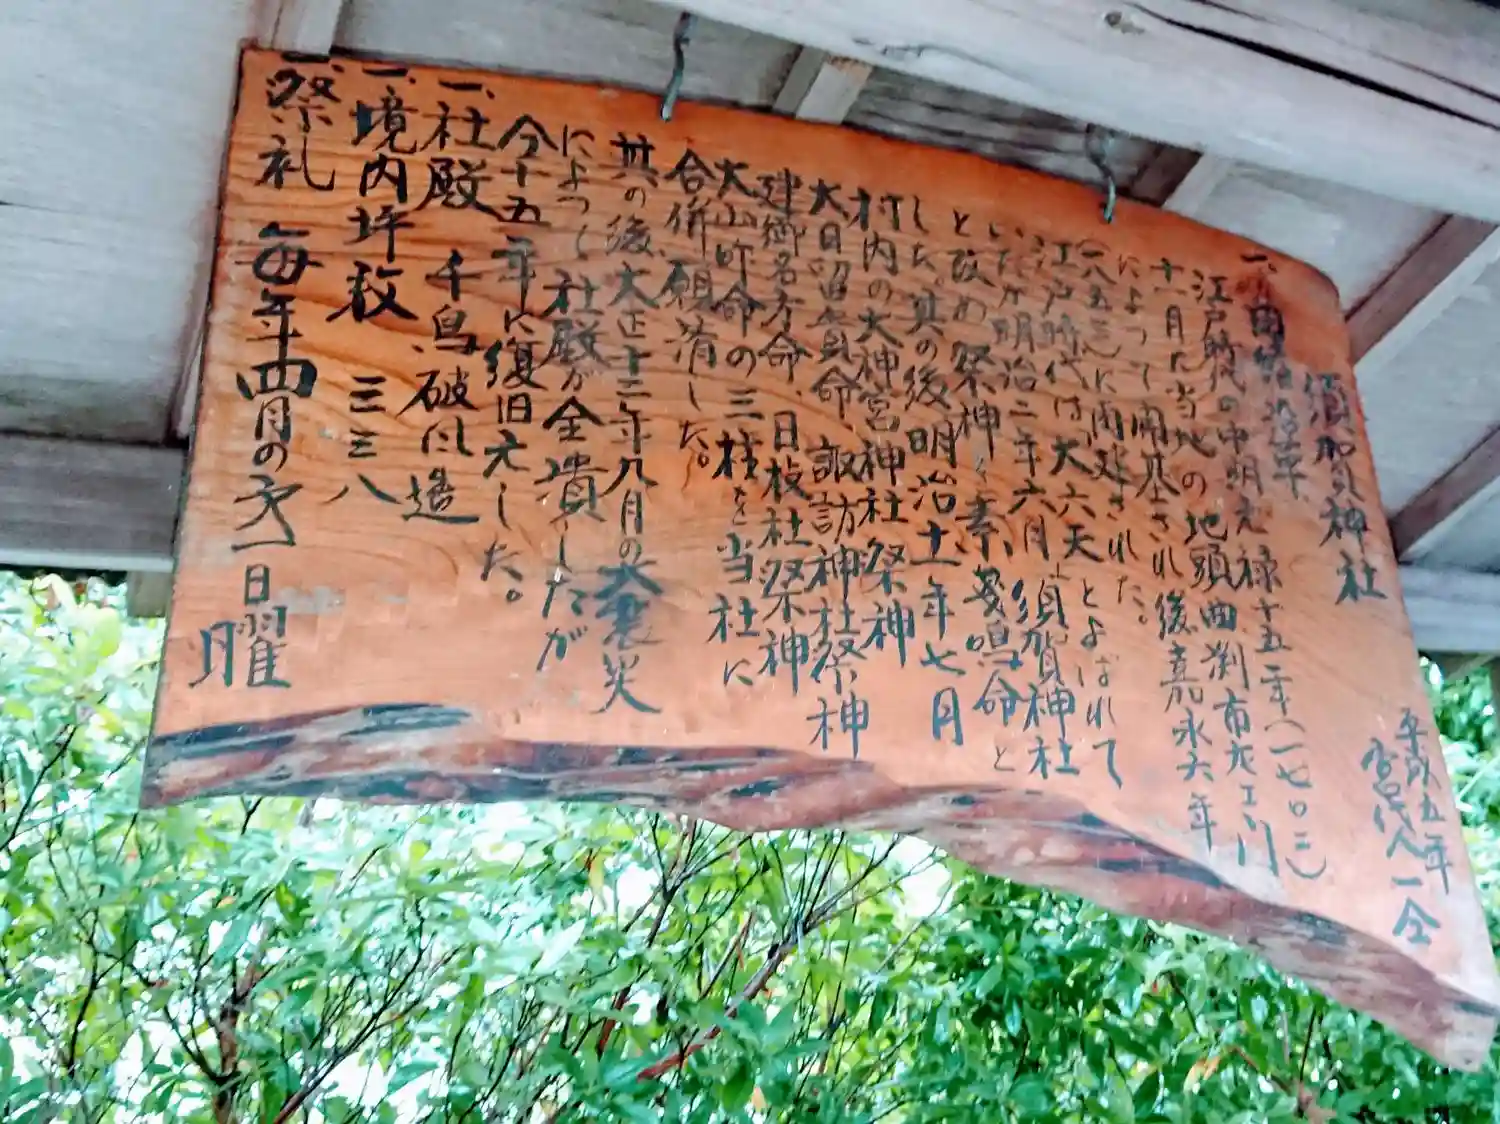 須賀神社
一、開発沿革
江戸時代の中期元禄十五年(一七〇三)
十一月た当地の地頭曲渕市左エ川
によって開基され後嘉永六年
(一八五三)に再建された。
江戸時代は大六天とよばれて
いたが明治二年六月須賀神社
と改め祭神を素戔嗚命と
した。其の後明治十一年七月
村内の大神宮神社祭神
大日孁貴命、諏訪神社祭神
建御名方命、日枝社祭神
大山咋命の三柱を当社に
合併願済した。
其の後大正十二年九月の大震災
によって社殿が全潰したが
今十五年に復旧元した。
一、社殿 千鳥破風造
一、境内坪数 三三八
一、祭礼 毎年四月の第一日曜
平成五年